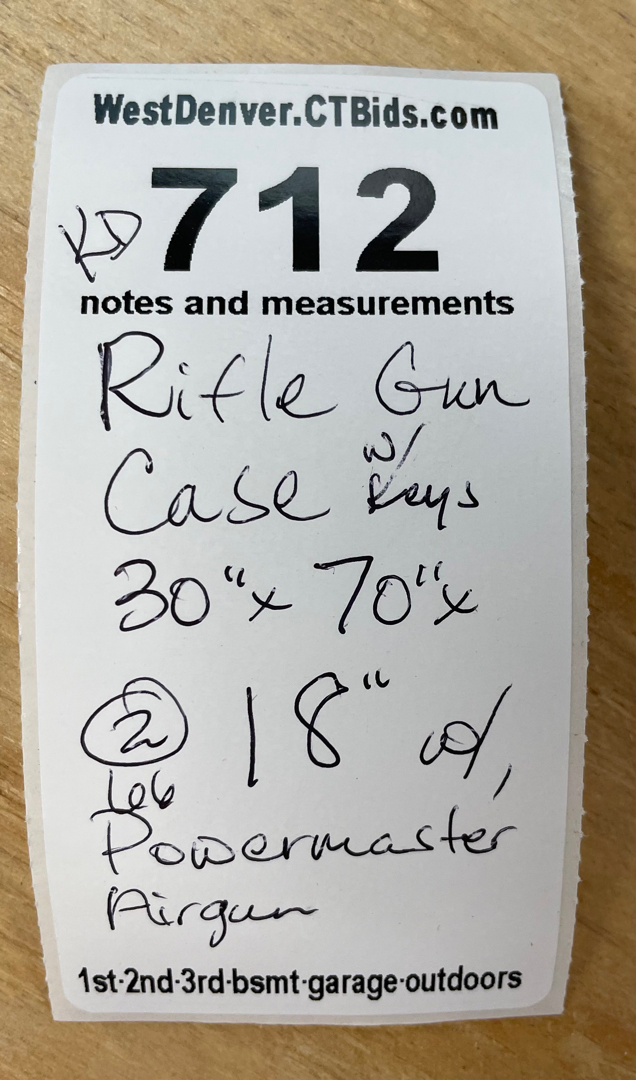 WestDenver.CTBids.com
KD 712
notes and measurements
Rifle Gun
Case w/ Keys
30" x 70" x
2 18" w/
Powermaster
Airgun
1st·2nd·3rd·bsmt·garage·outdoors